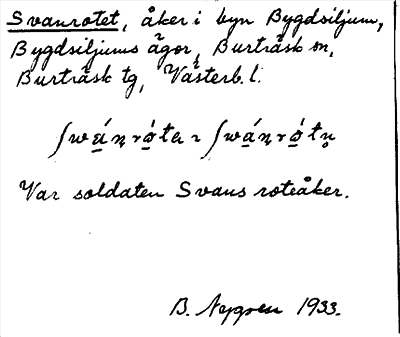 Svanrotet, åker i byn Bygdsiljum,
Bygdsiljums ägor, Burträsk sn,
Burträsk tg, Västerb. l.
ʃwánróta ~ ʃwánrótn̥
Var soldaten Svans roteåker.
B. Nygren 1933.